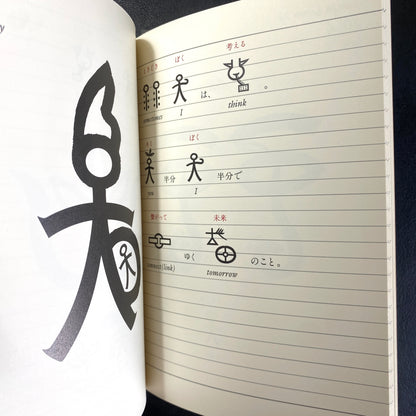 y
ときどき ぼく 考える
は、 。
sometimes I think
ぼく
半分 半分で
I
繋がって 未来
ゆく のこと。
connect(link) tomorrow